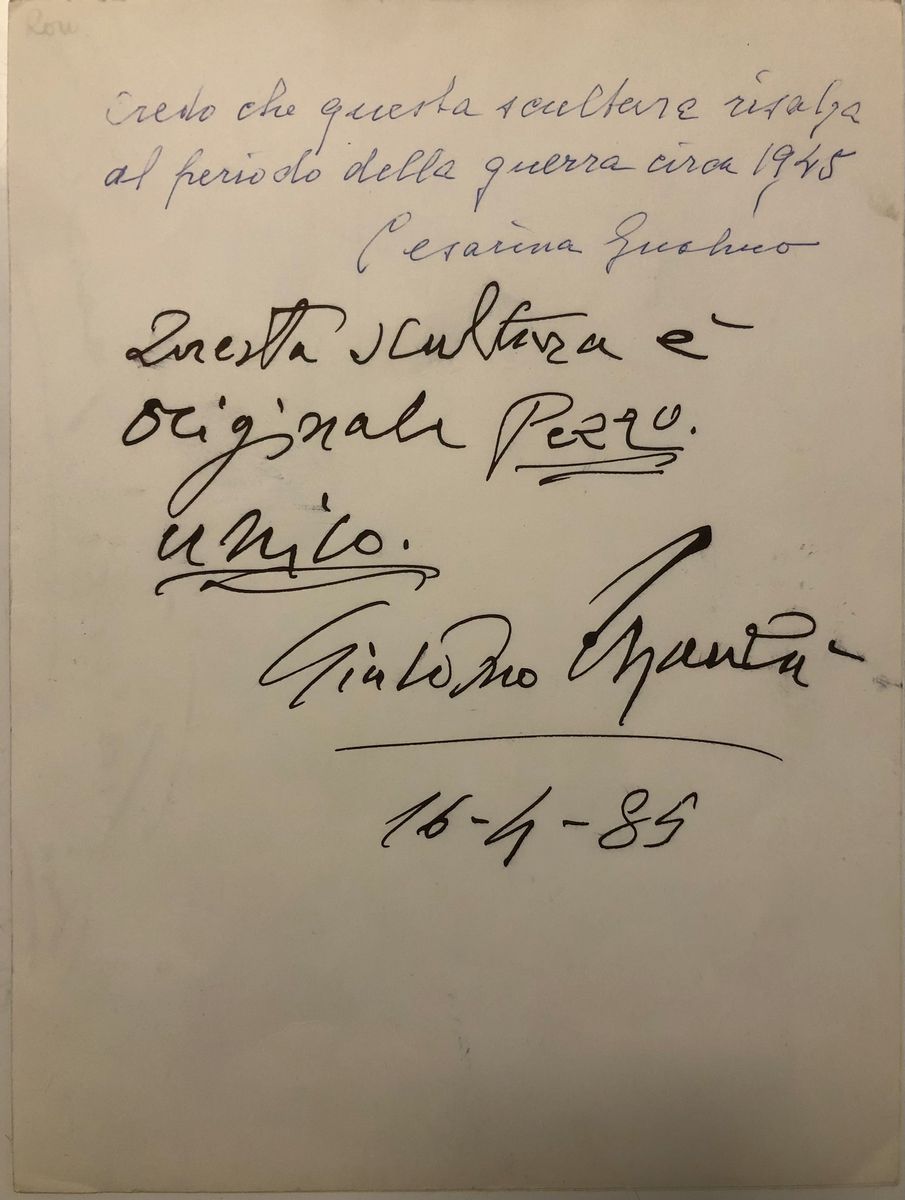 Rom
Credo che questa scultura risalga
al periodo della guerra circa 1945
Cesarina Gualino
Questa scultura è
originale Pezzo.
unico.
Giacomo Manzù
16-4-85